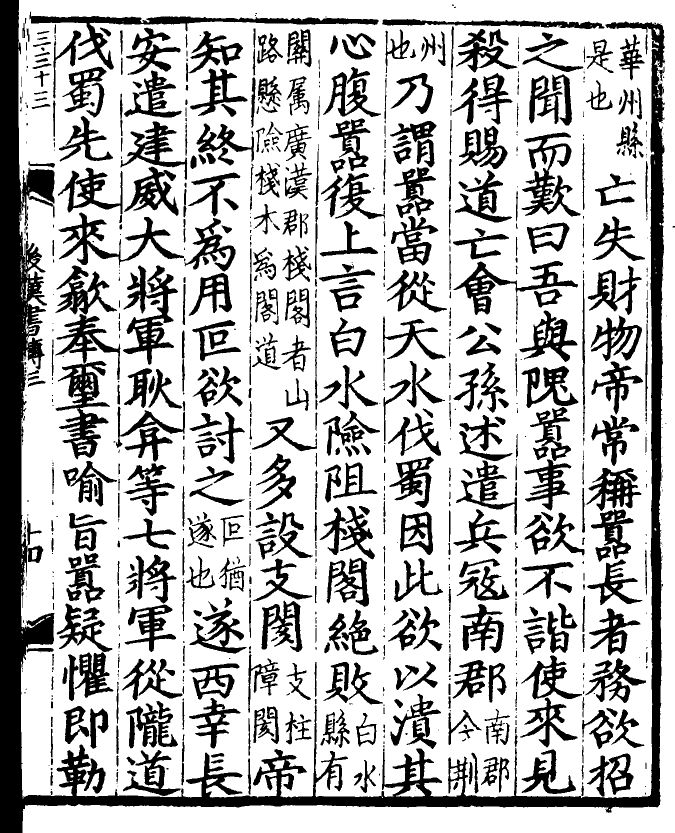 華州縣是也亡失財物帝常稱囂長者務欲招
之聞而歎曰吾與隗囂事欲不諧使來見
殺得賜道亡會公孫述遣兵冦南郡南郡今荆
州也乃謂囂當從天水伐蜀因此欲以潰其
心腹囂復上言白水險阻棧閣絕敗白水縣有
關属廣漢郡棧閣者山路懸險棧木爲閣道又多設支閡支柱障閡帝
知其終不爲用叵欲討之叵猶遂也遂西幸長
安遣建威大將軍耿弇等七將軍從隴道
伐蜀先使來歙奉璽書喻旨囂疑懼即勒
三·三十三
後漢書傳三
十四